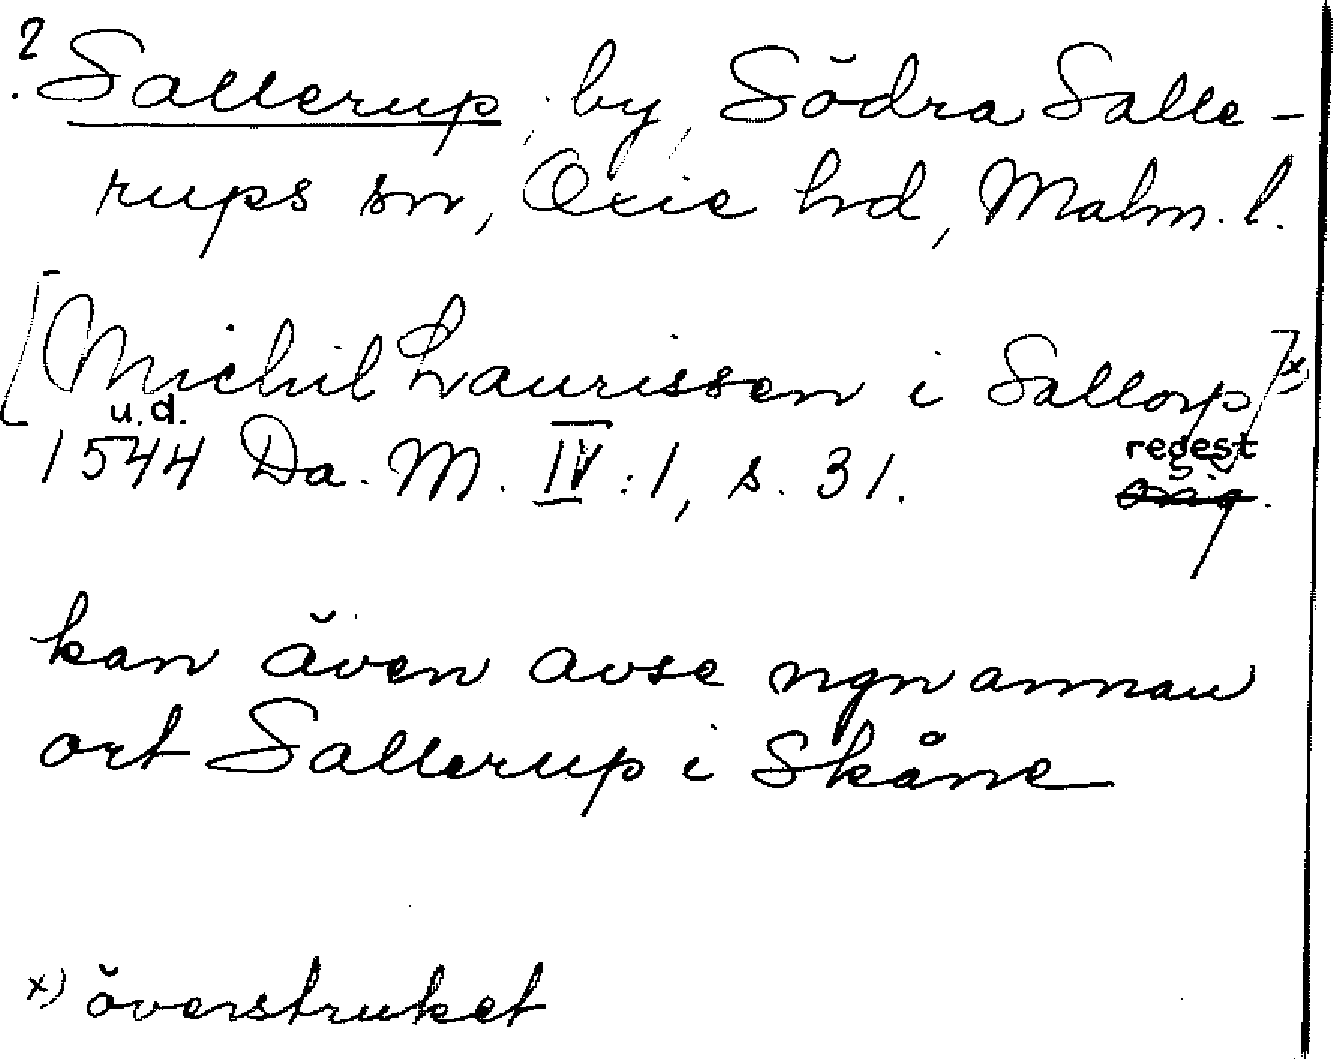 ? Sallerup, by, Södra Salle-
rups sn, Oxie hd, Malm. l.
[Michil Laurissen i Sallorp] x)
u.d. regest
1544 Da. M. IV:1, s. 31. orig.
kan även avse ngn annan
ort Sallerup i Skåne
x) överstruket